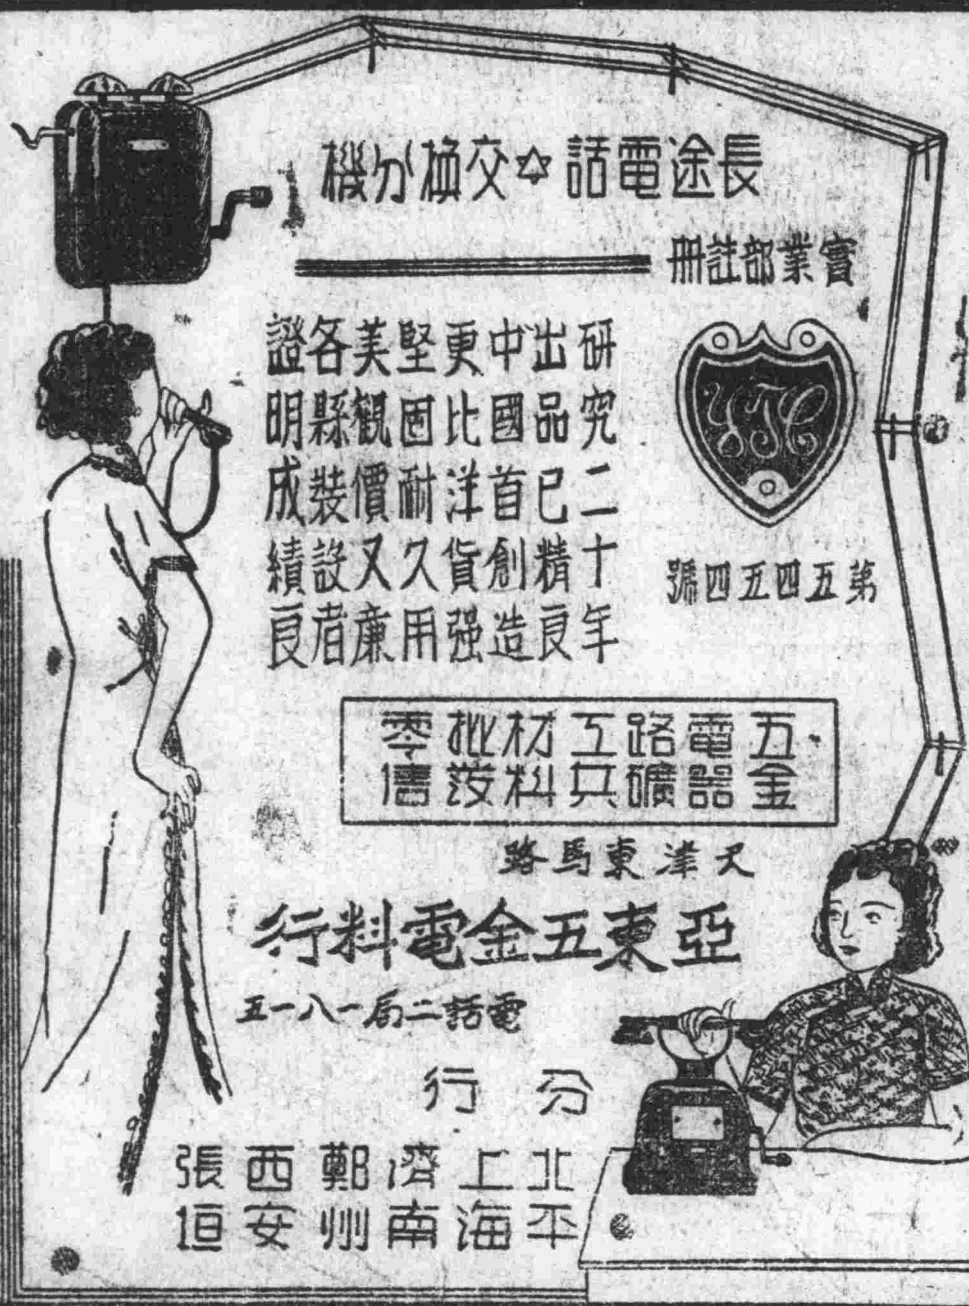 長途電話✡交換分機
實業部註冊
YTC
第五四五四號
研究二十年
出品已精良
中國首創造
更比洋貨强
堅固耐久用
美觀價又廉
各縣裝設者
證明成績良
五金
電器
路礦
工兵
材料
批發
零售
天津東馬路
亞東五金電料行
電話二局一八一五
分行
北平
上海
濟南
鄭州
西安
張垣